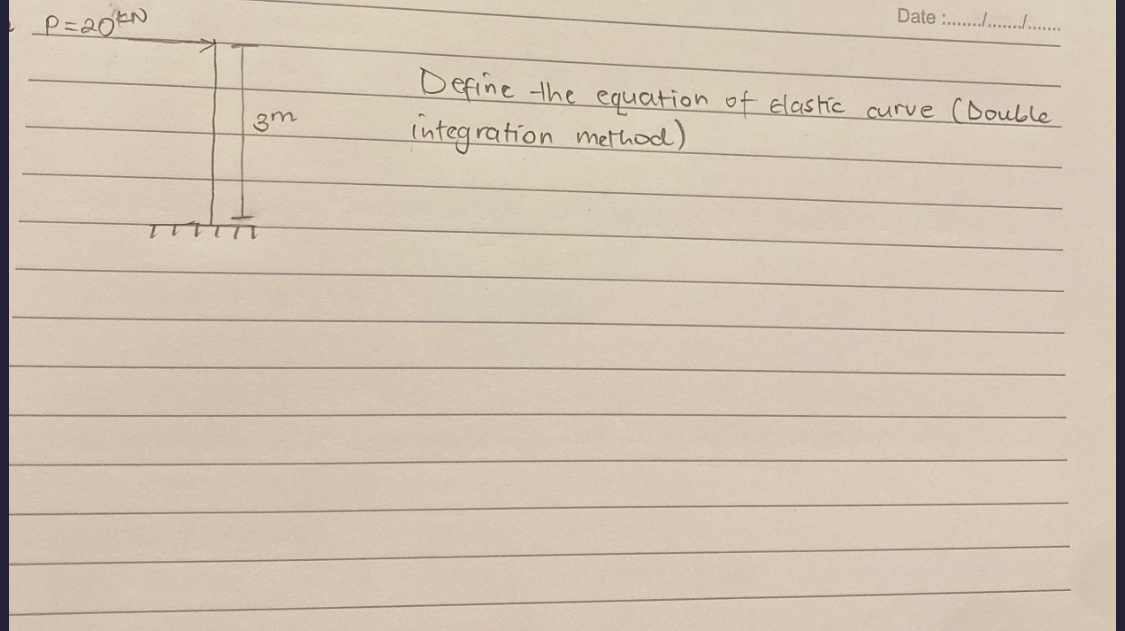 P=20kN
Date :......./......./.......
3m
Define the equation of elastic curve (Double
integration method)